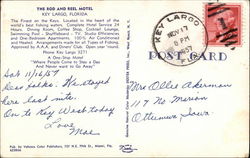 THE ROD AND REEL MOTEL
KEY LARGO, FLORIDA
"The Finest on the Keys. Located in the heart of the
world's best fishing waters. Complete Hotel Service 24
Hours. Dining Room, Coffee Shop, Coastal Lounge,
Swimming Pool - Shuffleboard - TV. Studio Efficiencies
and One Bedroom Apartments. 100% Air Conditioned
and Heated. Arrangements made for all Types of Fishing.
Approved by A.A.A. and Diners' Club. Open year 'round.
Phone Key Largo 3271
A One-Stop Motel
"Where People Come to Stay a Day
And Never want to Go Away"
Sat 11/16/57
Dear folks. We stayed
here last nite.
On to Key West today
Love
Mae
KEY LARGO
NOV 17
6 PM
1957
FLA
POST CARD
Mrs Ollie Ackerman
117 No Marion
Ottumwa Iowa